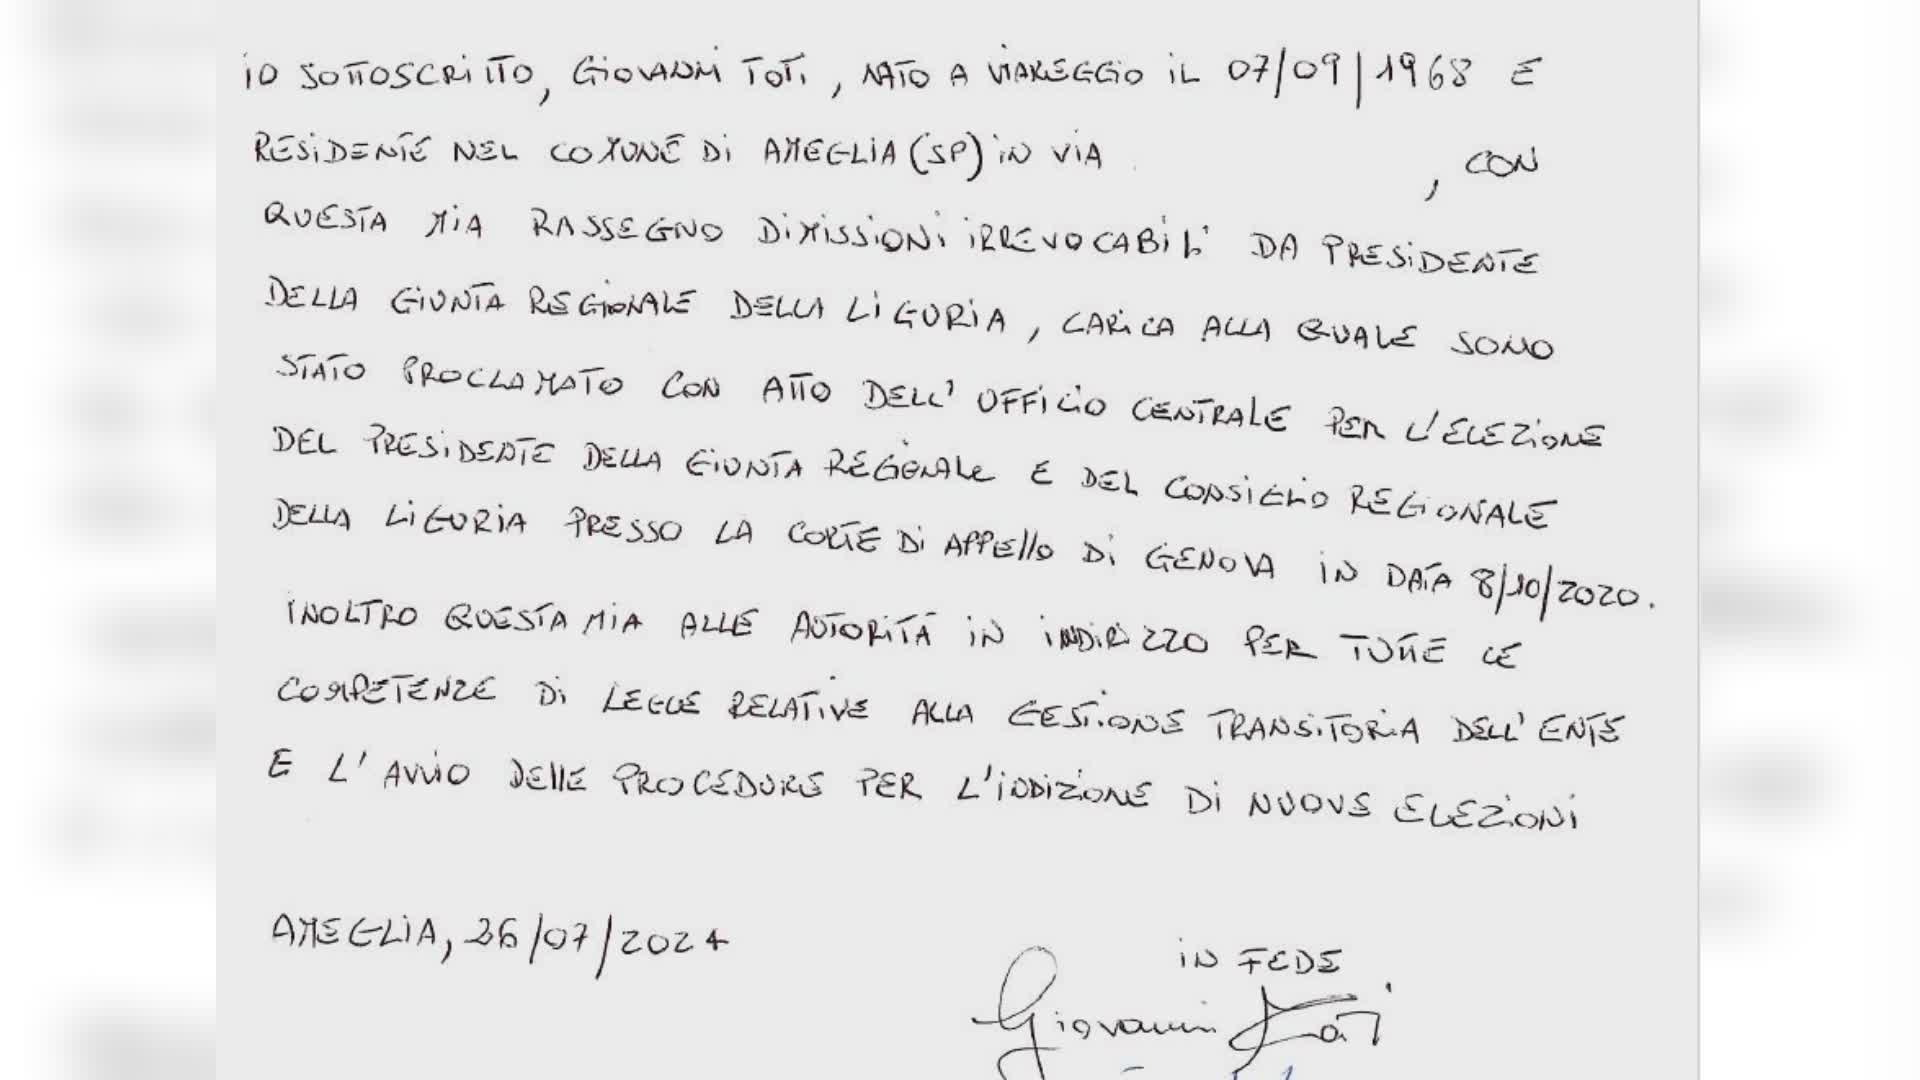 IO SOTTOSCRITTO, GIOVANNI TOTI, NATO A VIAREGGIO IL 07/09/1968 E
RESIDENTE NEL COMUNE DI AMEGLIA (SP) IN VIA , CON
QUESTA MIA RASSEGNO DIMISSIONI IRREVOCABILI DA PRESIDENTE
DELLA GIUNTA REGIONALE DELLA LIGURIA, CARICA ALLA QUALE SONO
STATO PROCLAMATO CON ATTO DELL'UFFICIO CENTRALE PER L'ELEZIONE
DEL PRESIDENTE DELLA GIUNTA REGIONALE E DEL CONSIGLIO REGIONALE
DELLA LIGURIA PRESSO LA CORTE DI APPELLO DI GENOVA IN DATA 8/10/2020.
INOLTRO QUESTA MIA ALLE AUTORITÀ IN INDIRIZZO PER TUTTE LE
COMPETENZE DI LEGGE RELATIVE ALLA GESTIONE TRANSITORIA DELL'ENTE
E L'AVVIO DELLE PROCEDURE PER L'INDIZIONE DI NUOVE ELEZIONI
AMEGLIA, 26/07/2024
IN FEDE
Giovanni Toti